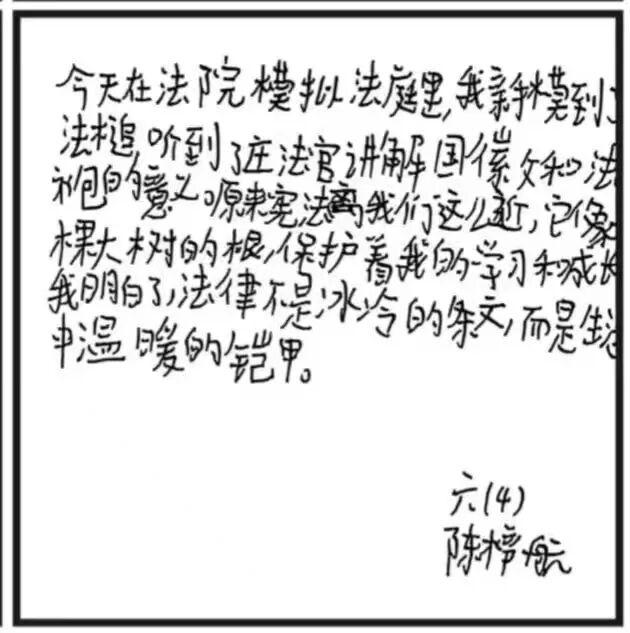 今天在法院模拟法庭里,我亲手摸到了
法槌,听到了庄法官讲解国徽和法
袍的意义。原来宪法离我们这么近,它像
棵大树的根,保护着我的学习和成长
我明白了,法律不是冰冷的条文,而是生活
中温暖的铠甲。
六(4)
陈 航